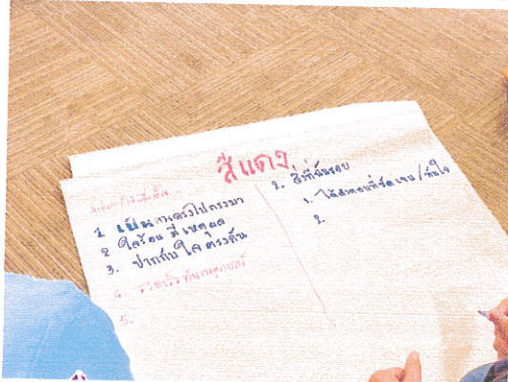 สีแดง
1 เป็นคนตรงไปตรงมา
2 ใจร้อน มีเหตุผล
3. ปากกับใจตรงกัน
4. รวดเร็ว ทันเหตุการณ์
5.
2. สิ่งที่ฉันชอบ
1. ได้คำตอบที่ชัดเจน/ทันใจ
2.